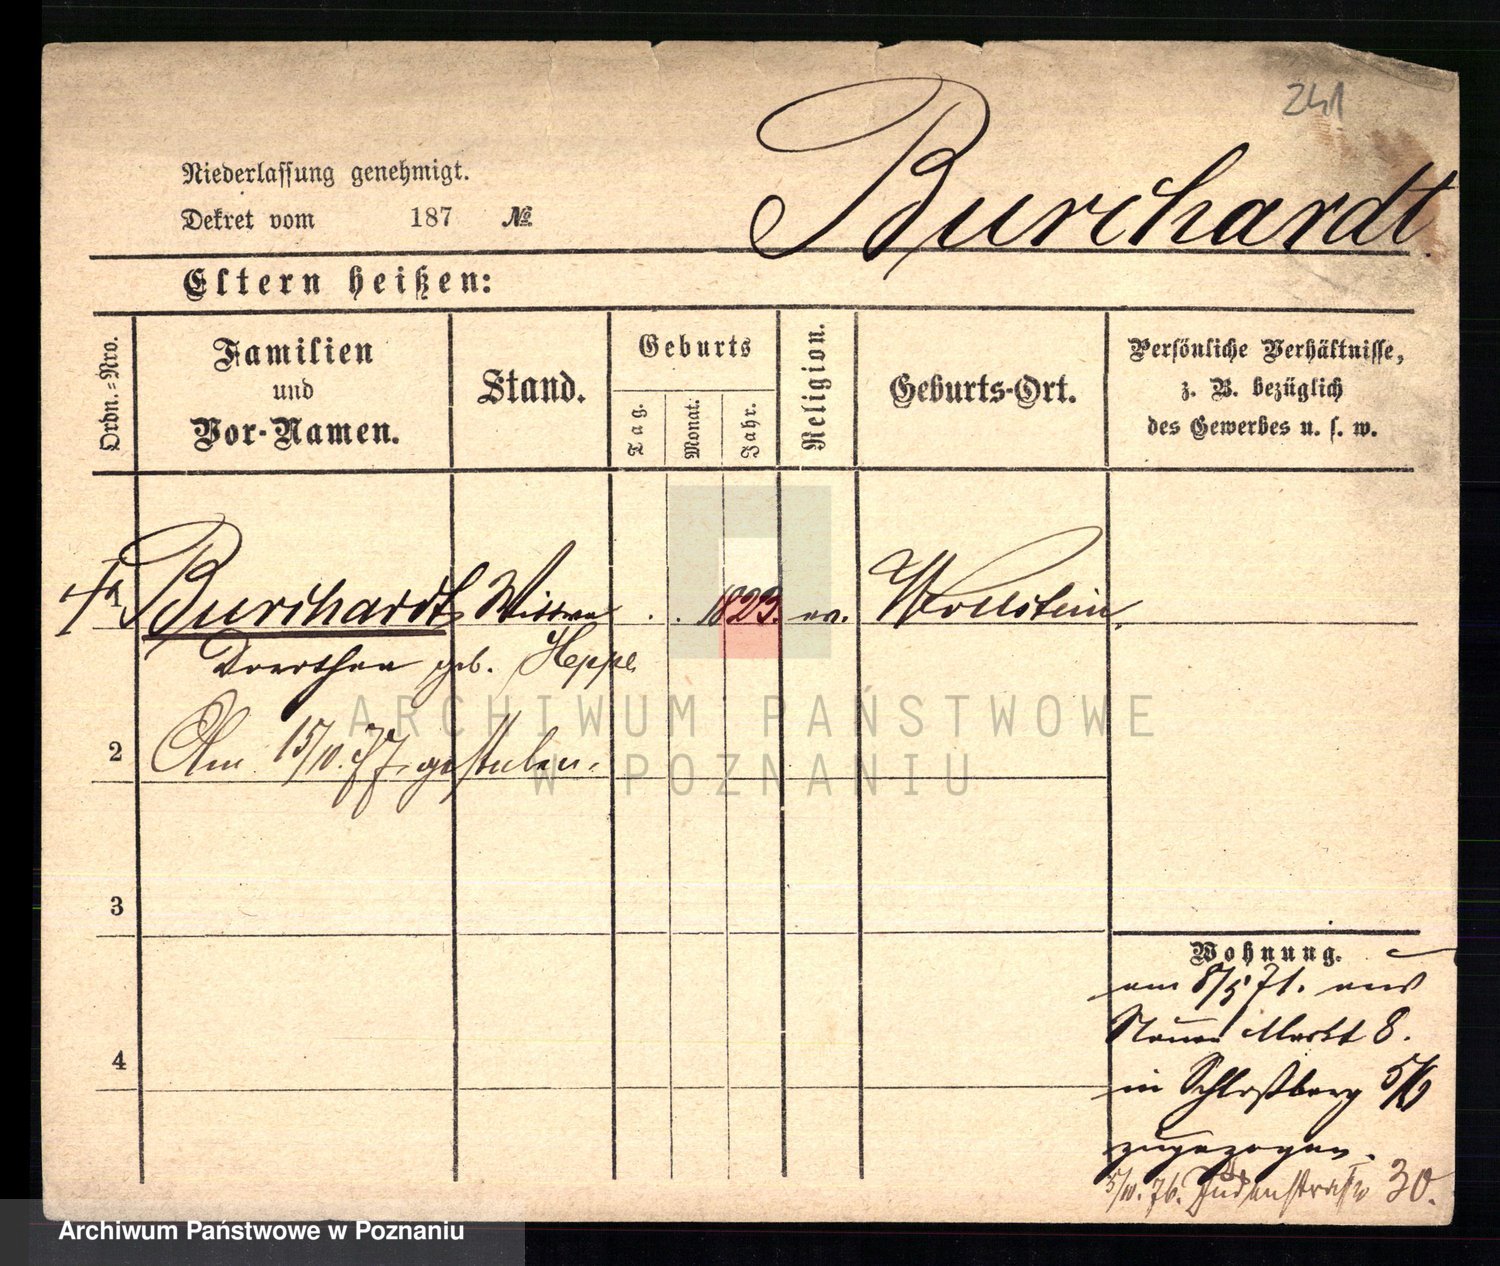 241
Burchardt.
Niederlassung genehmigt.
Dekret vom 187 №
Eltern heißen:
Ordn.=Nro.
Familien
und
Vor-Namen.
Stand.
Geburts
Tag.
Monat.
Jahr.
Religion.
Geburts-Ort.
Persönliche Verhältnisse,
z. B. bezüglich
des Gewerbes u. s. w.
Burchardt, Wittwe . . 1823. ev. Wollstein.
Dorothea geb. Heppe
2 Am 15/10. 77. gestorben.
ARCHIWUM PAŃSTWOWE
W POZNANIU
3
Wohnung.
am 8/5 71. aus
Neuer Markt 8.
4
in Schloßberg 5/6
zugezogen.
5/10. 76. Judenstraße 30.
Archiwum Państwowe w Poznaniu